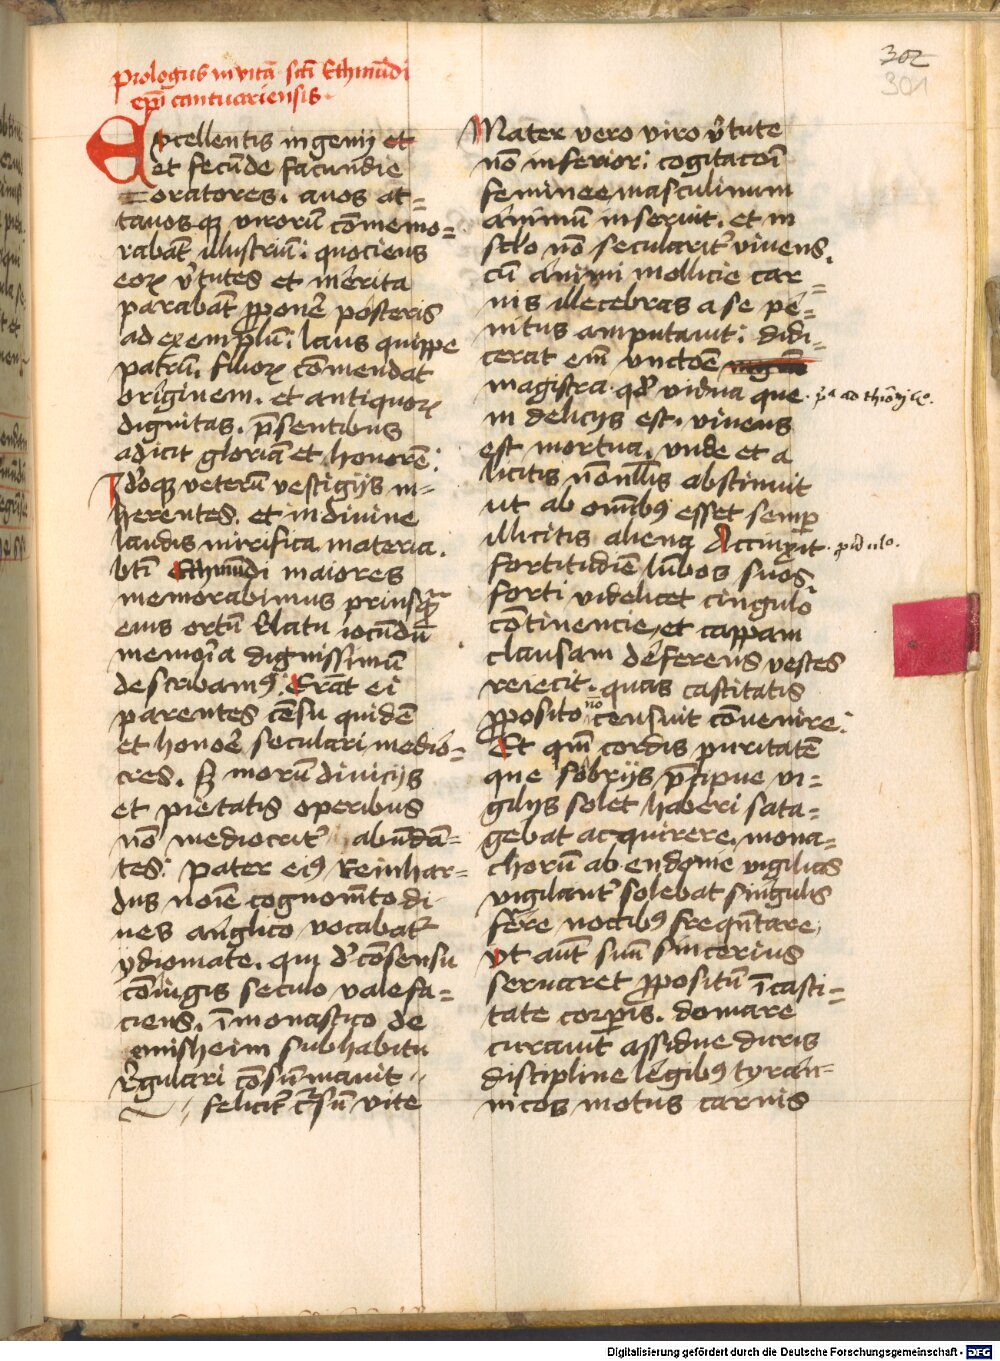 302
301
prologus in vitā sc̄ti Ethmūdi
ep̄i cantuariensis
Excellentis ingenij et
et fecūde facundie
oratores. auos at=
tauosqꝫ virorū cōmemo=
rabāt illustriū: quociens
eoꝝ v̓tutes et merita
parabāt ꝓponē posteris
ad exemplū: laus quippe
patrū. filioꝝ cōmendat
originem. et antiquoꝝ
dignitas. p̄sentibus
adicit gloriā et honorē:
Idoqꝫ veterū vestigijs in=
herentes. et in diuine
laudis mirifica materia.
bt̄i Ethmūdi maiores
memorabimus priusq̄
eius ortū Relatu iocūdū
memoria dignissimū
describamꝰ: Erāt ei
parentes cēsu quidē
et honoē seculari medio=
cres. sꝫ morū diuicijs
et pietatis operibus
nō mediocrit̓ abūdā=
tes: pater eiꝰ Reinhar=
dus noīe cognom̄to di
ues anglico vocabat̓
ydiomate. qui d̓ cōsensu
cōiugis seculo valefa=
ciens. ī monastico de
enisheim sub habitu
r̓gulari cōsūmauit
felicit̓ c̓sū vite
Mater vero viro v̓tute
nō inferior: cogitacōi
feminee masculinum
animū inseruit. et in
sc̄lo nō seculariт̓ viuens.
cū animi mollicie car=
nis illecebras a se pe=
nitus amputauit: didi=
cerat em̄ vnctōe
magistra. qd̓ vidua que
in delicijs est. viuens
est mortua. vnde et a
licitis nōnull̄is abstinuit
ut ab om̄ibꝰ esset semꝑ
illicitis aliena Accinxit
fortitudīe lūbos suos
forti videlicet cingulo
cōtinencie, et cappam
clausam deferens vestes
reiecit. quas castitatis
ꝓposito nō censuit cōuenire:
Et qm̄ cordis puritatē
que sobrijs p̄cipue vi=
gilijs solet haberi sata=
gebat acquirere. mona=
chorū ab endonie vigilias
vigilant̓ solebat singulis
fere noctibꝰ freqn̄tare,
vt aūt suū sincerius
seruaret ꝓpositū ī casti=
tate corꝑis. domare
curauit assidue duris
discipline legibꝰ tyran=
nicos motus carnis
Digitalisierung gefördert durch die Deutsche Forschungsgemeinschaft - DFG